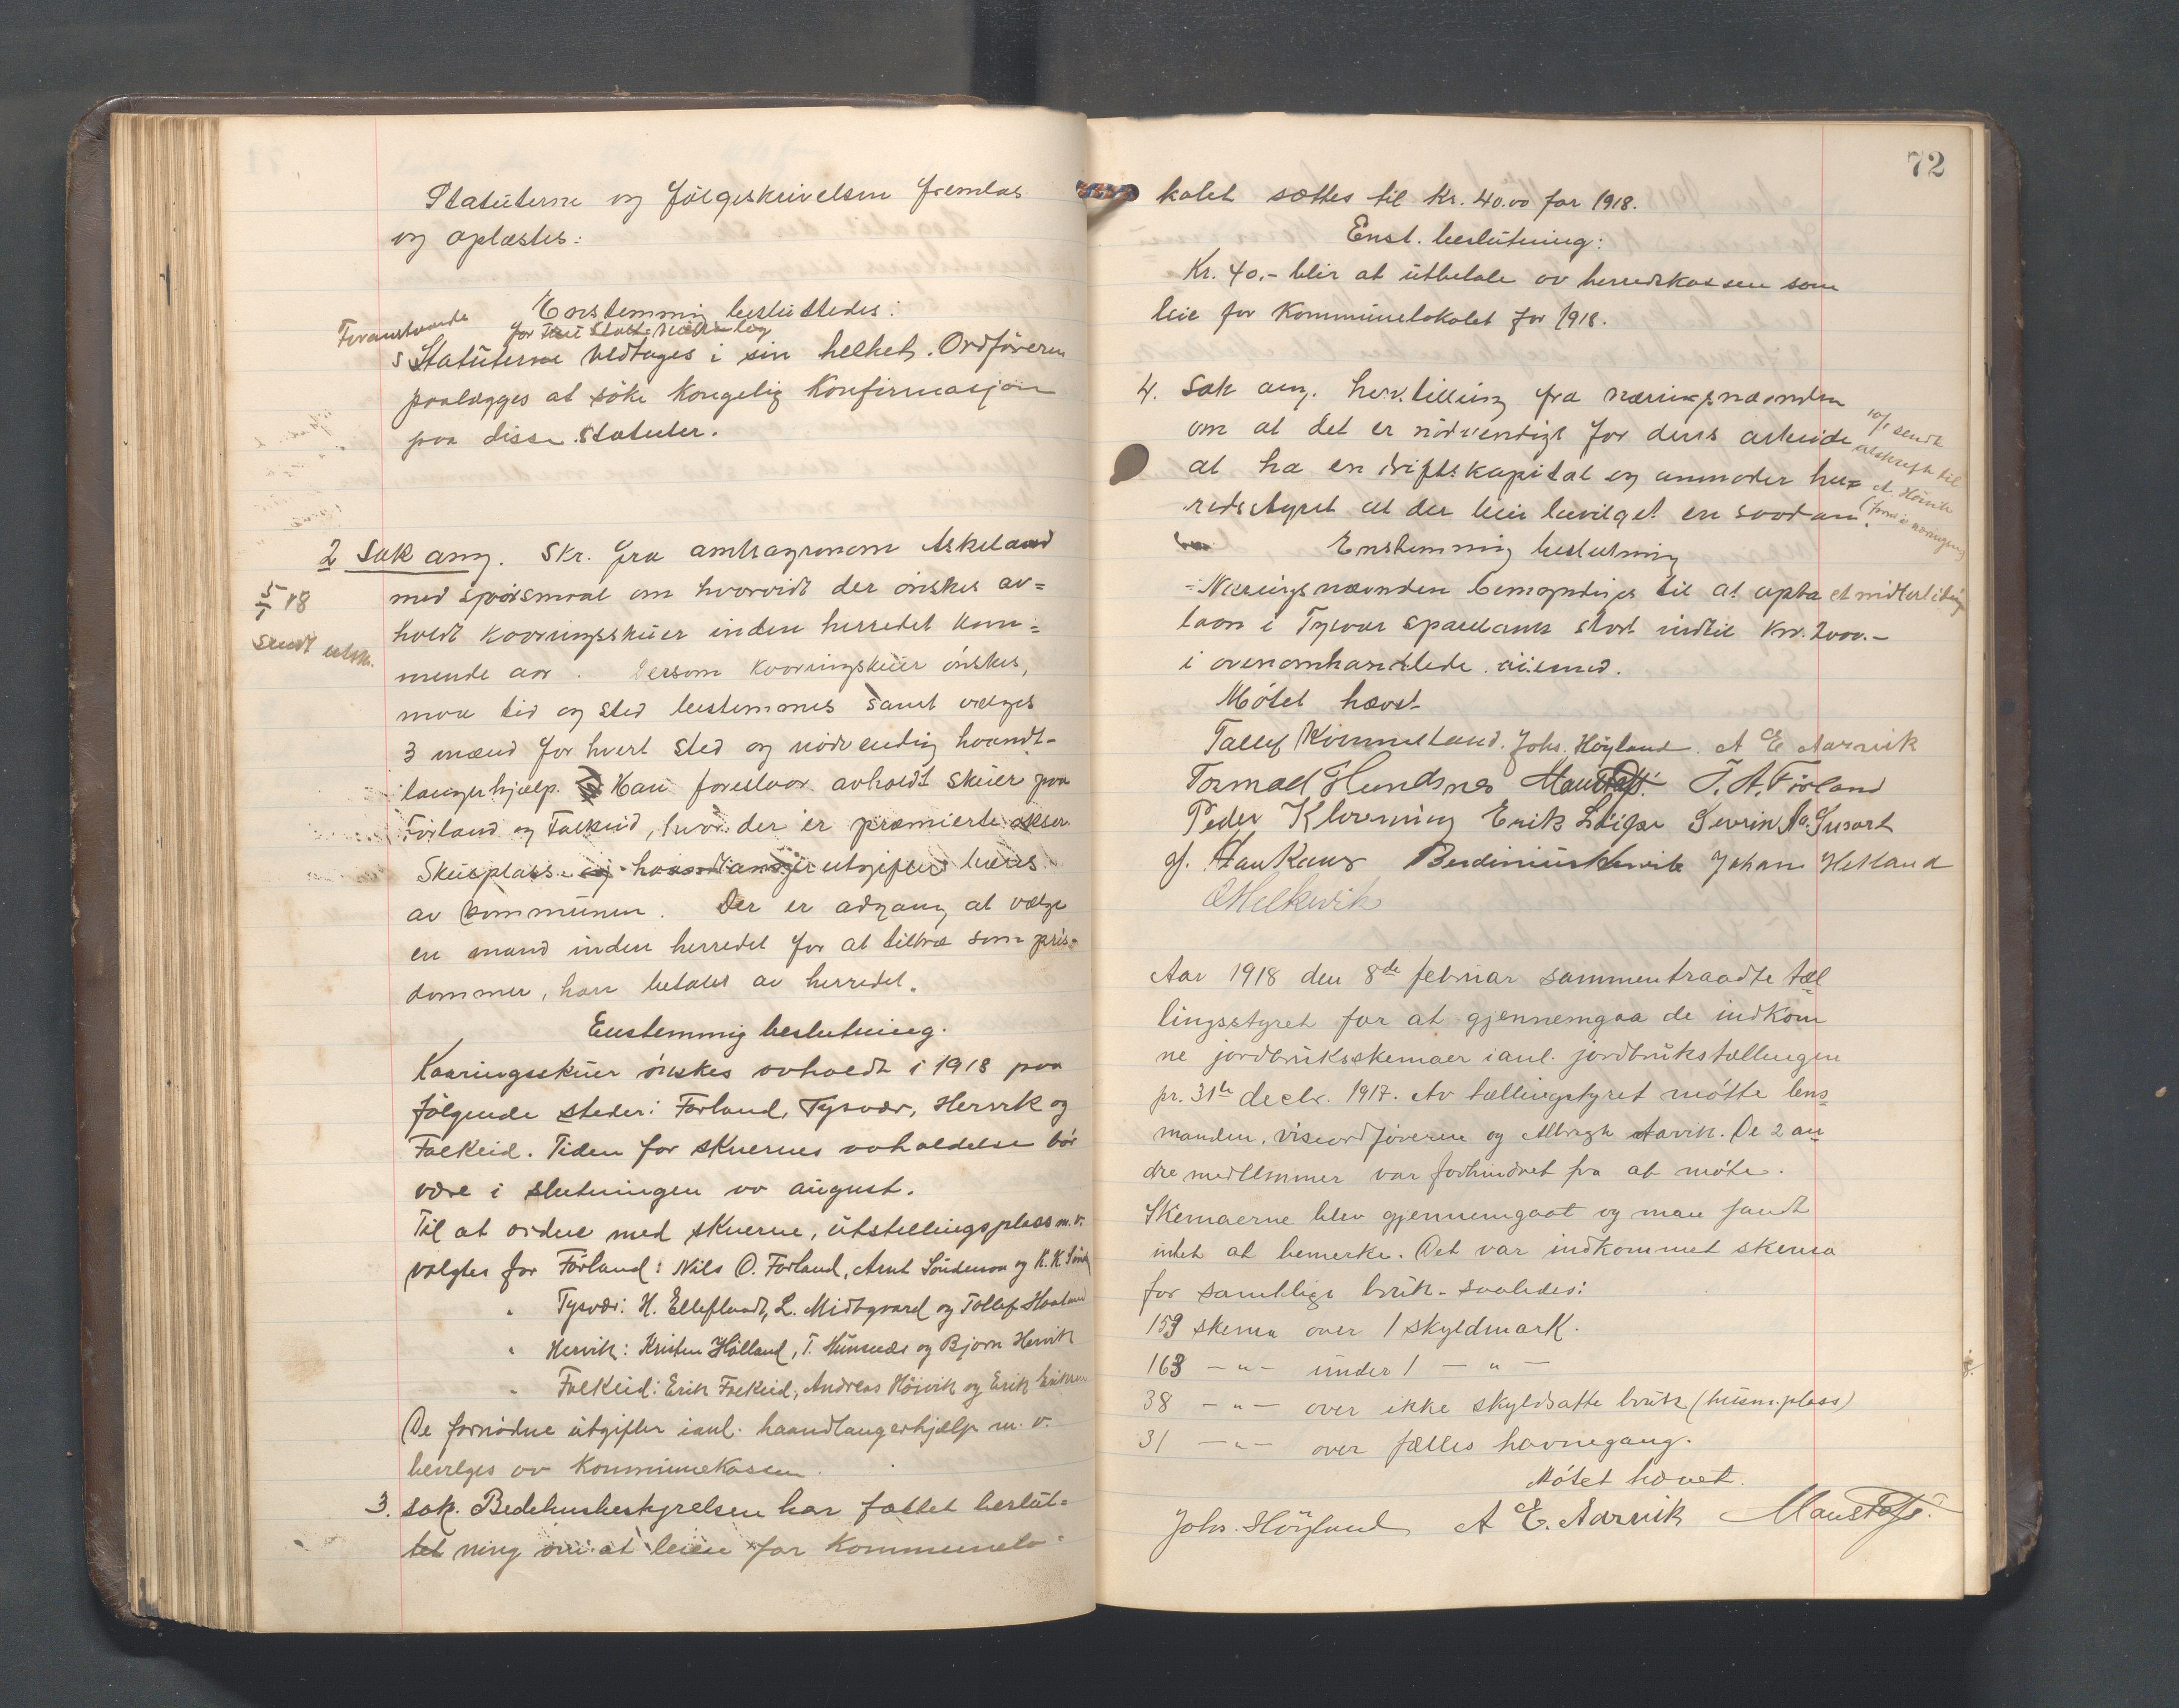 Statuterne og følgeskrivelsen fremlas
og oplæstes:
Enstemmig besluttedes:
Foranstaaende
Statuterne vedtages i sin helhet. Ordføreren
paalægges at søke Kongelig Konfirmasjon
paa disse statuter.
2 Sak ang. Skr. fra amtsagronom Askeland
med spørsmaal om hvorvidt der ønskes av=
5/1 18
holdt kaaringsskuer inden herredet kom=
sendt utskr.
mende aar. Dersom kaaringsskuer ønskes,
maa tid og sted bestemmes samt vælges
3 mænd for hvert sted og nødvendig haandt-
langerhjælp. Han foreslaar avholdt skuer paa
Førland og Falkeid, hvor der er præmierte okser.
Skueplass- og haandlangerutgifter bæres
av kommunen. Der er adgang at vælge
en mand inden herredet for at tiltræ som pris=
dommer, han betales av herredet.
Enstemmig beslutning.
Kaaringsskuer ønskes avholdt i 1918 paa
følgende steder: Førland, Tysvær, Hervik og
Falkeid. Tiden for skuernes avholdelse bør
være i slutningen av august.
Til at ordne med skuerne, utstillingsplass m.v.
valgtes for Førland: Nils O. Førland, Arnt Søndenaa og K. K.
" Tysvær: H. Elleflaadt, L. Midtgaard og Tollef Haaland
" Hervik: Kristen Hålland, T. Hunsnæs og Bjørn Hervik
" Falkeid: Erik Falkeid, Andreas Høivik og Erik Eriksen
De fornødne utgifter i anl. haandlangerhjælp m. v.
bevilges av Kommunekassen.
3. sak. Bedehusbestyrelsen har fattet beslut=
tet ning om at leien for Kommunelo=
72
kalet sættes til Kr. 40.00 for 1918.
Enst. beslutning:
Kr. 40,- blir at utbetale av herredskassen som
leie for Kommunelokalet for 1918.
4. Sak ang. henstilling fra næringsnævnden
om at det er nødvendigt for deres arbeide
at ha en driftskapital og anmoder her=
redsstyret at der blir bevilget en saadan.
10/1 sendt
utskrift til
A. Høivik
Enstemmig beslutning
Næringsnævnden bemyndiges til at opta et midlertidig
laan i Tysvær sparebank stort indtil Kr. 2000.-
i ovenomhandlede øiemed.
Møtet hævet
Tallef Kommeland. Johs. Høyland. A E Aarvik
Tormod Hundsnes T. A. Førland
Peder Klovning Erik Severin
Haukaas Berdinius Hervik Johan Hetland
O Helkvik
Aar 1918 den 8de februar sammentraadte tæl
lingsstyret for at gjennemgaa de indkom
ne jordbruksskemaer i anl. jordbrukstællingen
pr. 31te decbr. 1917. Av tællingstyret møtte lens=
manden, viseordføreren og Albregt Aarvik. De 2 an
dre medlemmer var forhindret fra at møte.
Skemaerne blev gjennemgaat og man fandt
intet at bemerke. Det var indkommet skema
for samtlige bruk - saaledes:
159 skema over 1 skyldmark.
163 -"- under 1 -"-
38 -"- over ikke skyldsatte bruk (husm.plass)
31 -"- over fælles havnegang.
Møtet hævet.
Johs. Høyland A E. Aarvik